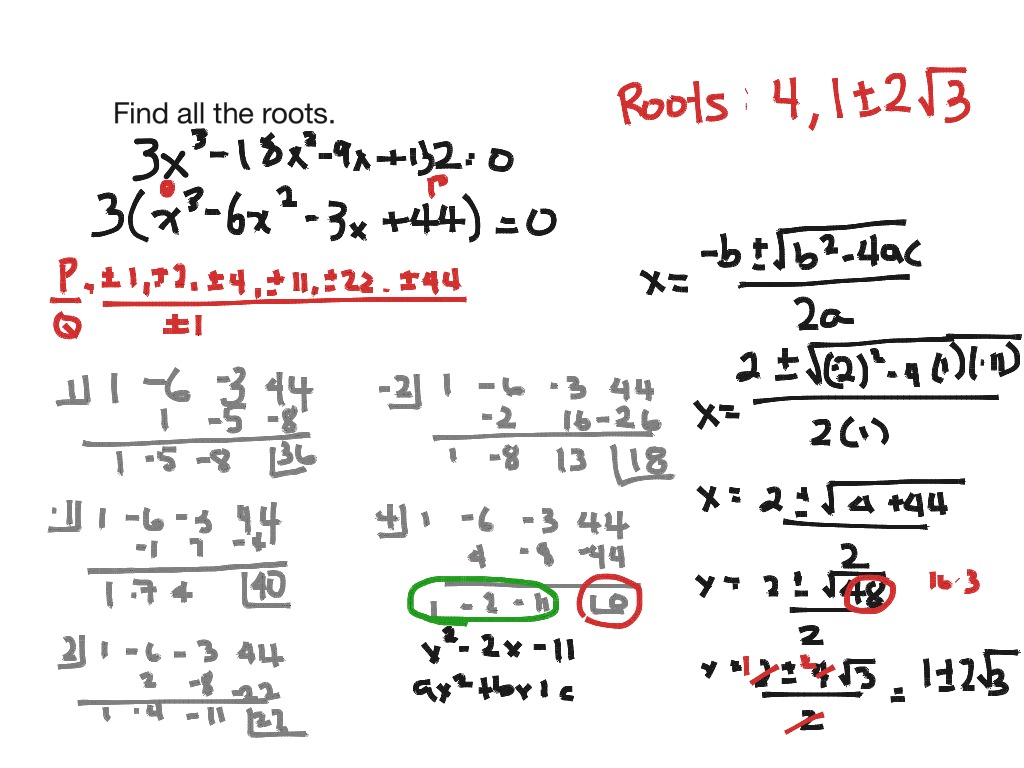 Find all the roots.
3x³ - 18x² - 9x + 132 = 0
3(x³ - 6x² - 3x + 44) = 0
P
±1, ±2, ±4, ±11, ±22, ±44
Q
±1
1| 1 -6 -3 44
1 -5 -8
1 -5 -8 |36
-1| 1 -6 -3 44
-1 7 -4
1 -7 4 |40
2| 1 -6 -3 44
2 -8 -22
1 -4 -11 |22
-2| 1 -6 -3 44
-2 16 -26
1 -8 13 |18
4| 1 -6 -3 44
4 -8 -44
1 -2 -11 |0
x² - 2x - 11
ax² + bx + c
Roots: 4, 1 ± 2√3
x = -b ± √b² - 4ac
2a
x = 2 ± √(-2)² - 4(1)(-11)
2(1)
x = 2 ± √4 + 44
2
x = 2 ± √48
2
16·3
x = 2 ± 4√3
1 2
2
= 1 ± 2√3